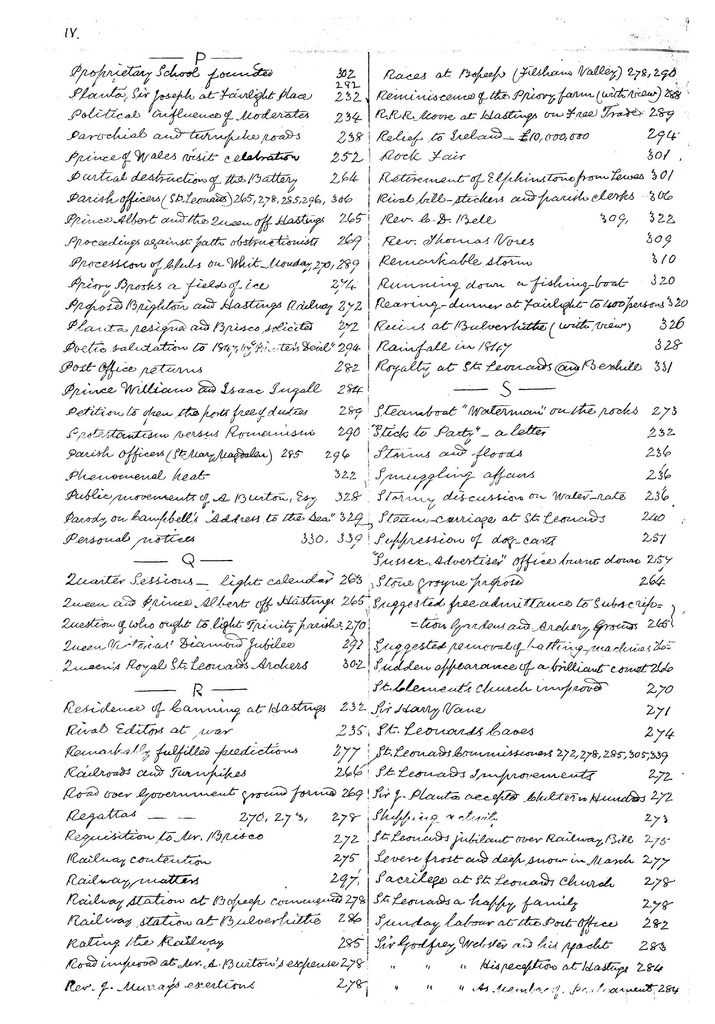 IV.
— P —
Proprietary School founded 302
292
Planta, Sir Joseph at Fairlight Place 232
Political influence of Moderates 234
Parochial and turnpike roads 238
Prince of Wales visit celebration 252
Partial destruction of the Battery 264
Parish officers (St. Leonards) 265, 278, 285, 296, 306
Prince Albert and the Queen off Hastings 265
Proceedings against path obstructionists 269
Procession of Clubs on Whit-Monday, 270, 289
Priory Brooks a field of ice 274
Proposed Brighton and Hastings Railway 272
Planta resigns and Brisco solicited 272
Poetic salutation to 1847, by "Printer's Devil" 294
Post Office returns 282
Prince William and Isaac Ingall 284
Petition to open the ports free of duties 289
Protestantism versus Romanism 290
Parish Officers (St. Mary Magdalen) 285 296
Phenomenal heat 322
Public movements of A Burton, Esq 328
Parody on Campbell's "Address to the Sea" 329
Personal notices 330, 339
— Q —
Quarter Sessions — light calendar 263
Queen and Prince Albert off Hastings 265
Question of who ought to light Trinity parish 270
Queen Victoria's Diamond Jubilee 292
Queen's Royal St. Leonards Archers 302
— R —
Residence of Canning at Hastings 232
Rival Editors at war 235
Remarkably fulfilled predictions 277
Railroads and Turnpikes 266
Road over Government ground formed 269
Regattas — — 270, 273, 278
Requisition to Mr. Brisco 272
Railway contention 275
Railway matters 297
Railway station at Bopeep commenced 278
Railway station at Bulverhithe 286
Rating the Railway 285
Road improved at Mr. A. Burton's expense 278
Rev. J. Murray's exertions 278
Races at Bopeep (Filsham Valley) 278, 290
Reminiscence of the Priory farm (with view) 288
R.R.R. Moore at Hastings on Free Trade 289
Relief to Ireland — £10,000,000 294
Rock Fair 301
Retirement of Elphinstone from Lewes 301
Rival bill-stickers and parish clerks 306
Rev. C. D. Bell 309, 322
Rev. Thomas Vores 309
Remarkable storm 310
Running down a fishing-boat 320
Rearing-dinner at Fairlight to 400 persons 320
Ruins at Bulverhithe (with view) 326
Rainfall in 1847 328
Royalty at St. Leonards and Bexhill 331
— S —
Steamboat "Waterman" on the rocks 273
"Stick to Party" — a letter 232
Storms and floods 236
Smuggling affairs 236
Stormy discussion on Water-rate 236
Steam-carriage at St. Leonards 240
Suppression of dog-carts 251
"Sussex Advertiser" office burnt down 257
Stone groyne proposed 264
Suggested free admittance to Subscrip=
=tion Gardens and Archery Grounds 265
Suggested removal of bathing machines
Sudden appearance of a brilliant comet 266
St. Clement's Church improved 270
Sir Harry Vane 271
St. Leonards Caves 274
St. Leonards Commissioners 272, 278, 285, 305, 339
St. Leonards Improvements 272
Sir J. Planta accepts Chiltern Hundreds 272
Shipping 273
St Leonards jubilant over Railway Bill 275
Severe frost and deep snow in March 277
Sacrilege at St. Leonards Church 278
St. Leonards a happy family 278
Sunday labour at the Post Office 282
Sir Godfrey Webster and his yacht 283
" " " His reception at Hastings 284
" " " As Member of Parliament, 284